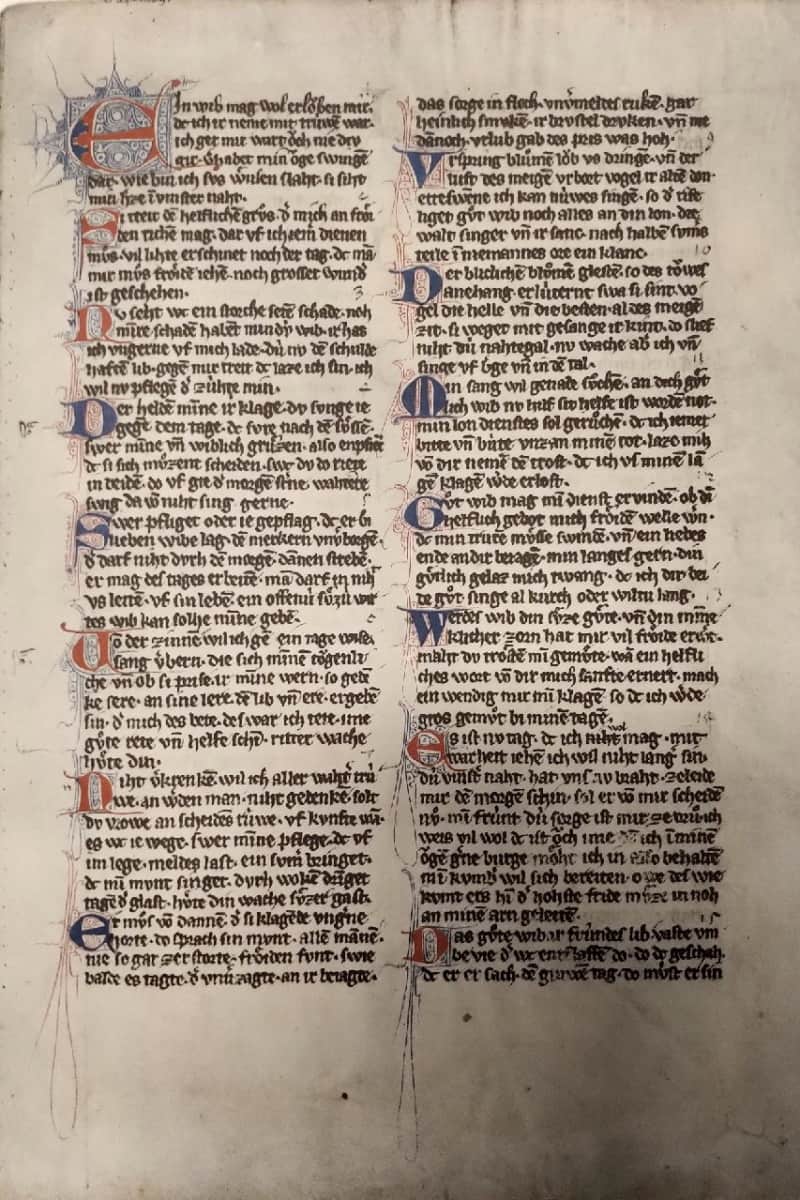 Ein wib mag wol erlőben mir.
dc ich ir neme mit trúwē war.
ich ger mir wart oͮch nie dry
gir. vn̄ aber min oͮge swingē
dar. wie bin ich svs
mir
Si treit dē helflichē grvͦs. d͛ mich an froͤi
den richē mag. dar vf ich iem dienen
mvͦs. vil lihte erschinet noch der tag. dc mā
mir mvͦs froͤide iehē. noch grosser wund͛
ist geschehen.
Nv seht wc ein storche seiē schade. noh
min͛e schadē habēt min dv wib. ir has
ich vngerne vf mich lade. dv́ nv dē schulde
haftē lib. gegē mir treit dc laze ich sin. ich
wil nv pflegē d͛ zúhte min.
Der helde mīne ir klage. dv svnge ie
gegē dem tage. dc svre nach dē svͦssē.
swer mīne vn̄ wiblich grvͤzen. also enpfiēt
dc si sich mvͤzent scheiden. swc dv do riete
in beiden. do vf gie d͛ morgē st͛ne. wahtere
swig da vō niht sing gerne.
Swer pfliget oder ie gepflag. dc er bi
lieben wibe lag. dē merkern vnv͛borgē.
d͛ darf niht dvrh dē morgē. dānen strebē.
er mag des tages erbeitē. mā darf in niht
vs leitē. vf sin lebē. ein offenú svͤzú wir
tes wib kan solhe mīne gebē.
Vō der zinnē wil ich gē in tage wise.
sang v͛bern. die sich mīnē tŏgenli
che vn̄ ob si prise. ir mīne wern. so gedē
ke sere. an sine lere. dē lib vn̄ ere. ergebē
sin. d͛ mich des bete. des war ich tete. ime
gvͦte rete vn̄ helfe schin. ritter wache
hvͤte din.
Niht v͛krenkē wil ich aller waht͛ trú
we. an w͛den man. niht gedenkē. solt
dv vrowe an scheidēs rúwe. vf kvnfte wan.
es wc ie wege. swer mīne pflege. dc vf
im lege. meldes last. ein svm͛ bringet.
dc min mvnt singet. dvrh wolkē dringet
tagēd͛ glast. hvͤte din wache svͤzer gast.
Er mvͦs vō dannē d͛ si klagēde vngerne
horte. do sprach sin mvnt. allē mānē.
nie so gar zerstorte. froͤiden fvnt. swie
balde es tagte. d͛ vnv͛zagte. an ir beiagte.
das sorge in floch. vnv͛meldes rukē. gar
heinlich smvkē. ir brvstel drvken. vn̄ me
dānoch. vrlub gab des pris was hoh.
Vrsprung blvͦmē loͮb vs dringē. vn̄ der
luft des meigē vrbort vogel ir altē don.
etteswene ich kan nv́wes singē. so d͛ rife
liget gvͦt wib noch alles an din lon. die
walt singer vn̄ ir sanc. nach halbē svms
teile ī niemannes ore ein klanc.
Der bliclichē blvͦmē glestē. so des toͮwes
anehang. erlútert swa si sint. vo
gel die helle vn̄ die besten. al des meigē
zit. si weget mit gesange ir kint. do slief
niht dú nahtegal. nv wache ab ich vn̄
singe vf b͛ge vn̄ in dē tal.
Min sang wil genade svͦchē. an dich gvͤt
lich wib nv hilf sit helfe ist wordē not.
min lon dienstes sol gervͦchē. dc ich iemer
biute vn̄ biute vnz an minē tot. laze mih
vō dir nemē dē trost. dc ich vs minē lā
gē klagē w͛de erlost.
Gvͦt wib mag min dienst ervindē. ob dī
helflich gebot mich froͤidē welle w͛n.
dc min trurē mvͤsse swindē. vn̄ ein liebes
ende an dir beiagē. min langes gern. din
gvͤtlich gelaz mich twang. dc ich dir bei
de gvͦt singe al kurch oder wiltu lang.
Werdes wib din svͤze gvͤte. vn̄ din mīne
klicher zorn hat mir vil froͤide erw͛t.
maht dv trŏstē mī gemvͤte. wā ein helfli
ches wort vō dir mich sanfte ernert. mach
ein wendig mir mī klagē so dc ich w͛de
gros gemvͦt bi minē tagē.
Es ist nv tag. dc ich niht mag. mit
warheit iehē ich wil niht lang͛ sin.
dú vinst͛e naht. hat vns nv braht. ze leide
mir dē morgē schin. sol er vō mir scheidē
nv. mī frúnt dú sorge ist mir ze vrv. ich
weis vil wol dc ist oͮch ime dē ich ī minē
oͮgē g͛ne burge moͤht ich in also behaltē
mī kvmb͛ wil sich breiten. owe des wie
kvmt ers hī d͛ hohste fride mvͤze in noh
an minē arn geleitē.
Das gvͦte wib ir frúndes lib vaste vm
bevie d͛ wc entslaffē do. do dc geschah.
dc er ersach. dē grawē tag. do mvͦst er sin